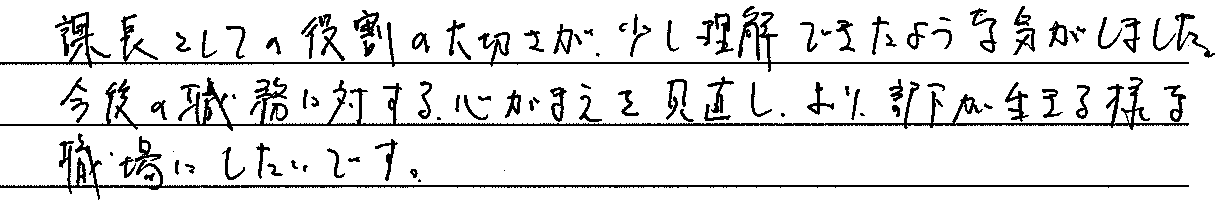 課長としての役割の大切さが、少し理解できたような気がしました。
今後の職務に対する、心がまえを見直し、より、部下が生きる様な
職場にしたいです。